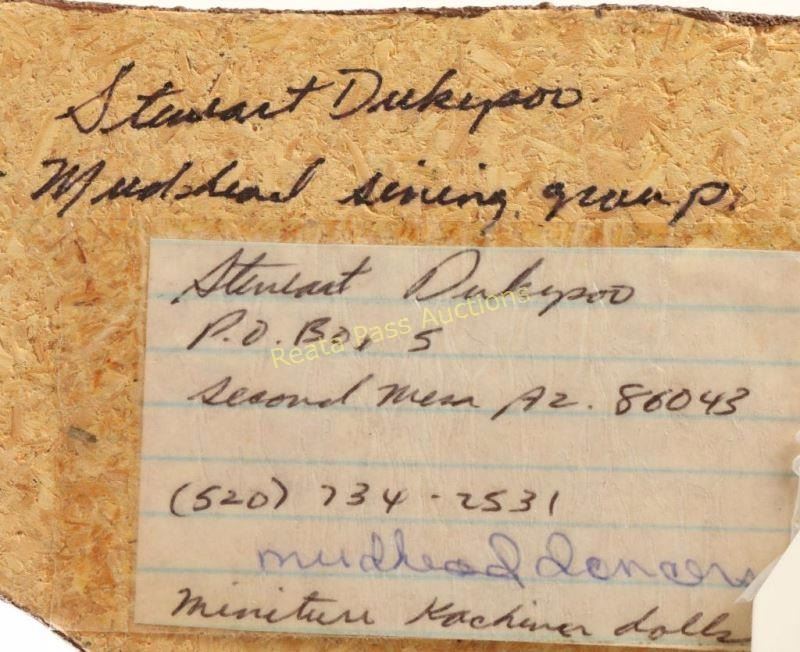 Stewart Dukepoo
Mudhead sining group.
Stewart Dukepoo
P.O. Box 5
Reata Pass Auctions
Second Mesa Az. 86043
(520) 734-2531
mudhead dancers
Miniture Kachina dolls